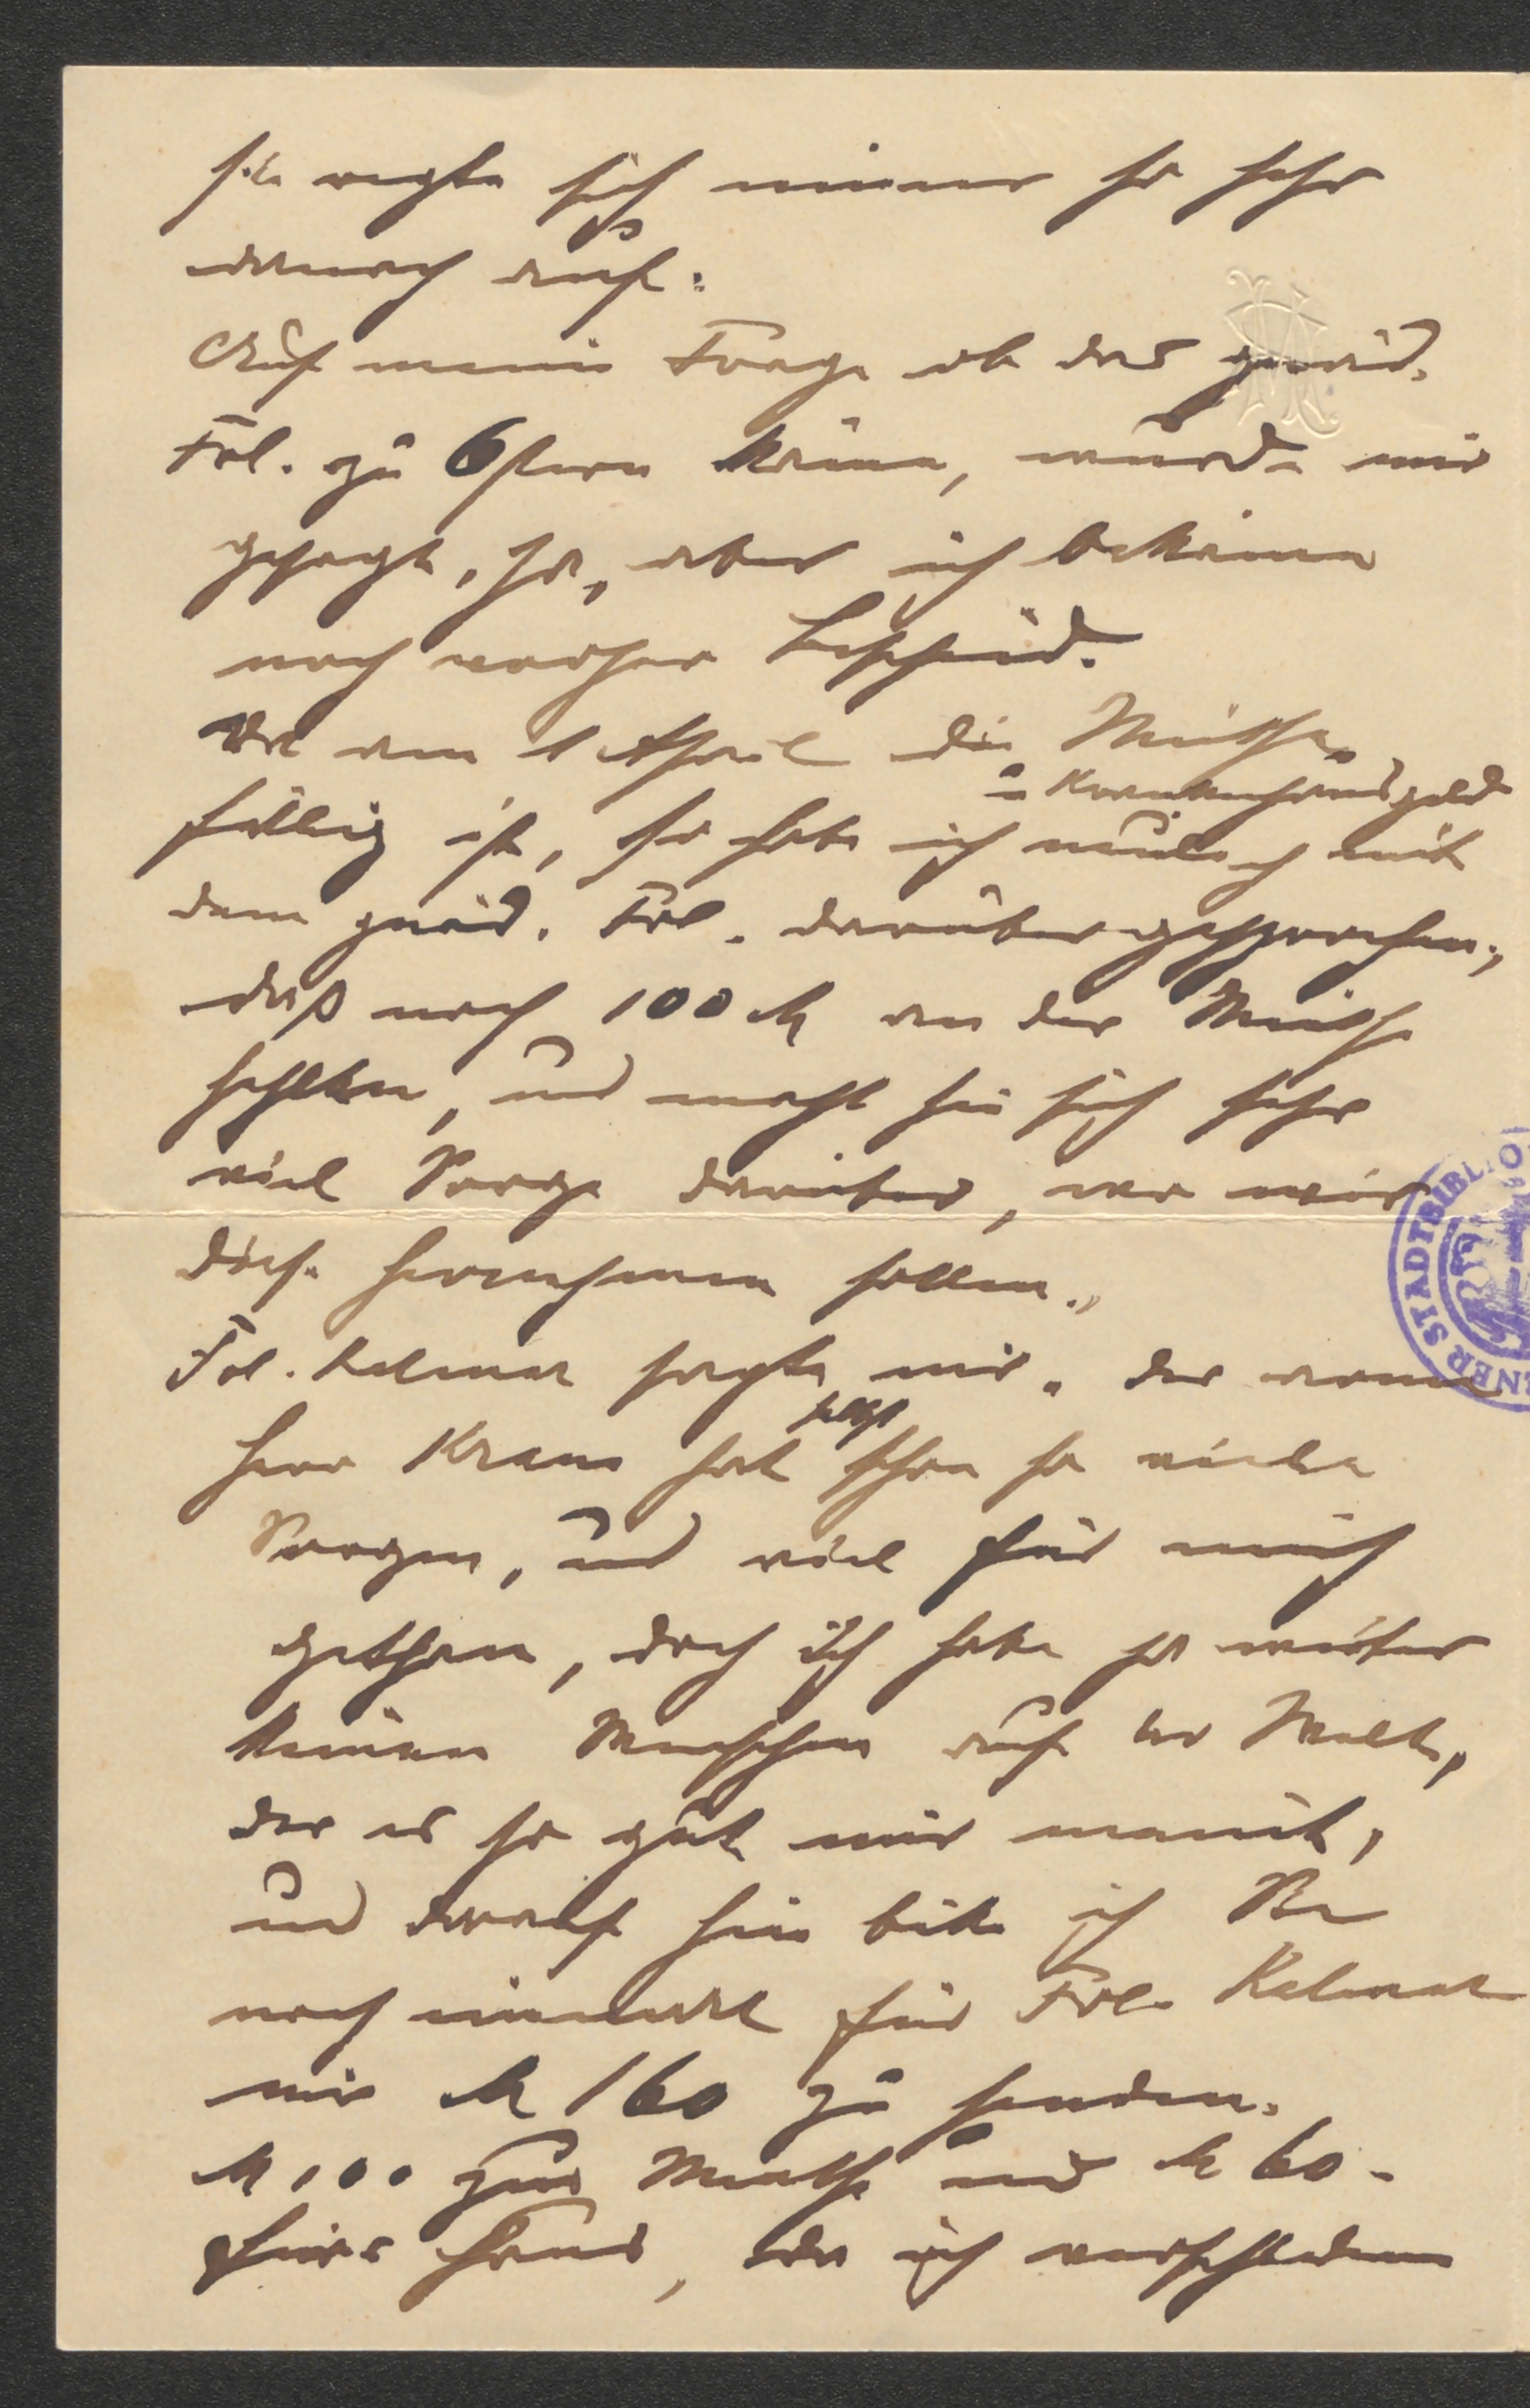 sie regte sich immer so sehr
danach auf.
Auf meine Frage ob das gnäd.
Frl. zu Ostern käme, wurde mir
gesagt, ja, aber ich bekäme
noch vorher Bescheid.
Da am 1 April die Miethe
u Krankenhausgeld
fällig ist, so habe ich neulich mit
dem gnäd. Frl. darüber gesprochen,
daß noch 100 M an der Miethe
fehlten, und macht sie sich sehr
viel Sorge darüber, wo wir
diese hernehmen sollen.
Frl. Kalmar sagte mir, der arme
selbst
Herr Kraus hat schon so viele
Sorgen, und viel für mich
gethan, doch ich habe ja weiter
keinen Menschen auf der Welt,
der es so gut mir meint,
und darauf hin bitte ich Sie
noch einmal für Frl. Kalmar
mir M 160 zu senden.
M 100 zur Miethe und M 60.
fürs Haus, da ich verschiedene
STADTBIBLIO